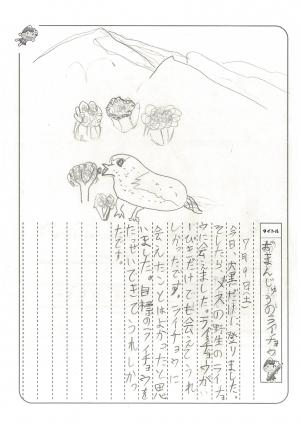 タイトル
おまんじゅうのライチョウ
7月9日(土)
今日、大黒だけに登りました。
そしたら、メスの野生のライチョ
ウに会えました。ライチョウが
一ぴきだけでも会えてうれ
しかったです。ライチョウに
会えたことはよかったと思
いました。目標のライチョウを
たっせいできて、うれしかっ
たです。